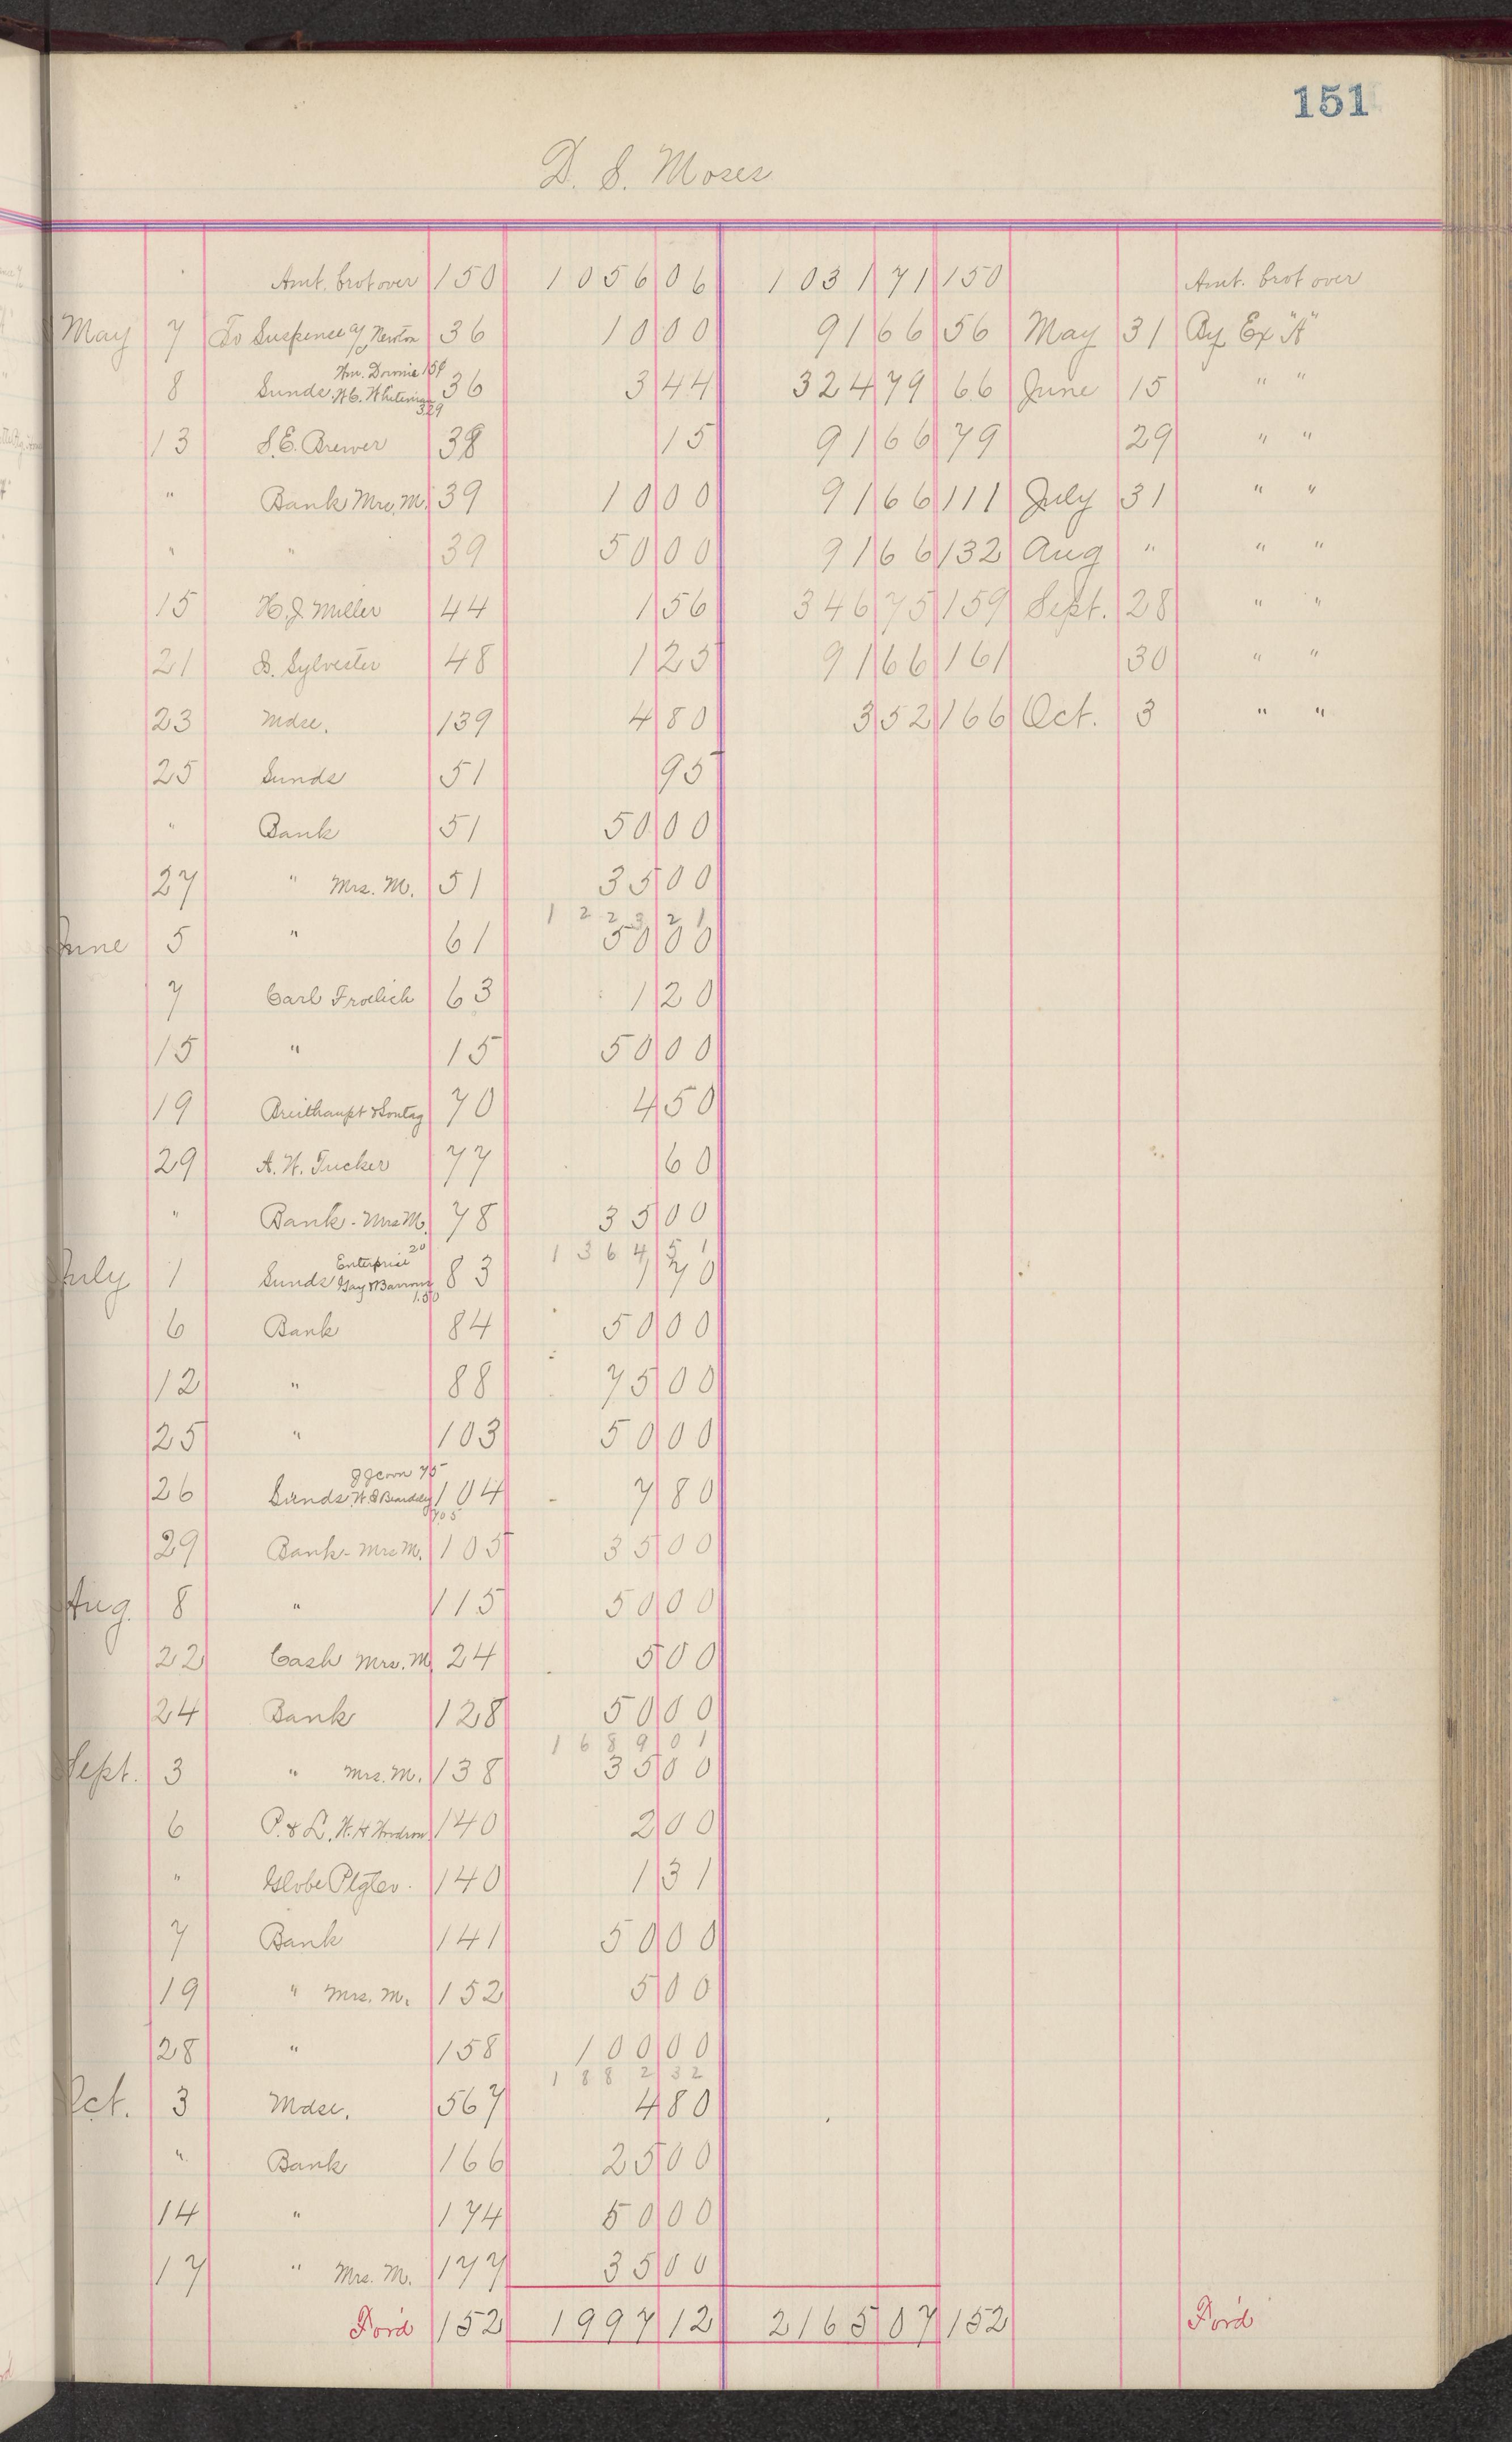 151
D. S. Moses
Amt. brot over 150 1056 06 1031 71 150 Amt. brot over
May 7 To Suspence a/ Newton 36 10 00 91 66 56 May 31 By Ex "A"
Wm. Downie 15¢
8 Sunds. H.C. Whiteman 36 3 44 324 79 66 June 15 " "
329
13 S.E. Brewer 38 15 91 66 79 29 " "
" Bank Mrs. M. 39 10 00 91 66 111 July 31 " "
" " 39 50 00 91 66 132 Aug " " "
15 H.J. Miller 44 1 56 346 75 159 Sept. 28 " "
21 B. Sylvester 48 1 25 91 66 161 30 " "
23 Mdse. 139 4 80 3 52 166 Oct. 3 " "
25 Sunds 51 95
" Bank 51 50 00
27 " Mrs. M. 51 35 00
1223 21
June 5 " 61 50 00
7 Carl Froelich 63 1 20
15 " 15 50 00
19 Breithaupt & Sontag 70 4 50
29 A. W. Tucker 77 60
" Bank - Mrs M. 78 35 00
1364 51
Enterprise 20
July 1 Sunds Gay & Barrows 83 1 70
1.50
6 Bank 84 50 00
12 " 88 75 00
25 " 103 50 00
J J Corn 75
26 Sunds. W.S Beardsley 104 7 80
705
29 Bank - Mrs M. 105 35 00
Aug. 8 " 115 50 00
22 Cash Mrs. M 24 5 00
24 Bank 128 50 00
1689 01
Sept. 3 " Mrs. M. 138 35 00
6 P. & L. W. H Woodson 140 2 00
" Globe Ptg Co. 140 1 31
7 Bank 141 50 00
19 " Mrs. M. 152 5 00
28 " 158 100 00
1882 32
Oct. 3 Mdse. 567 4 80
" Bank 166 25 00
14 " 174 50 00
17 " Mrs. M. 177 35 00
For'd 152 1997 12 2165 07 152 For'd